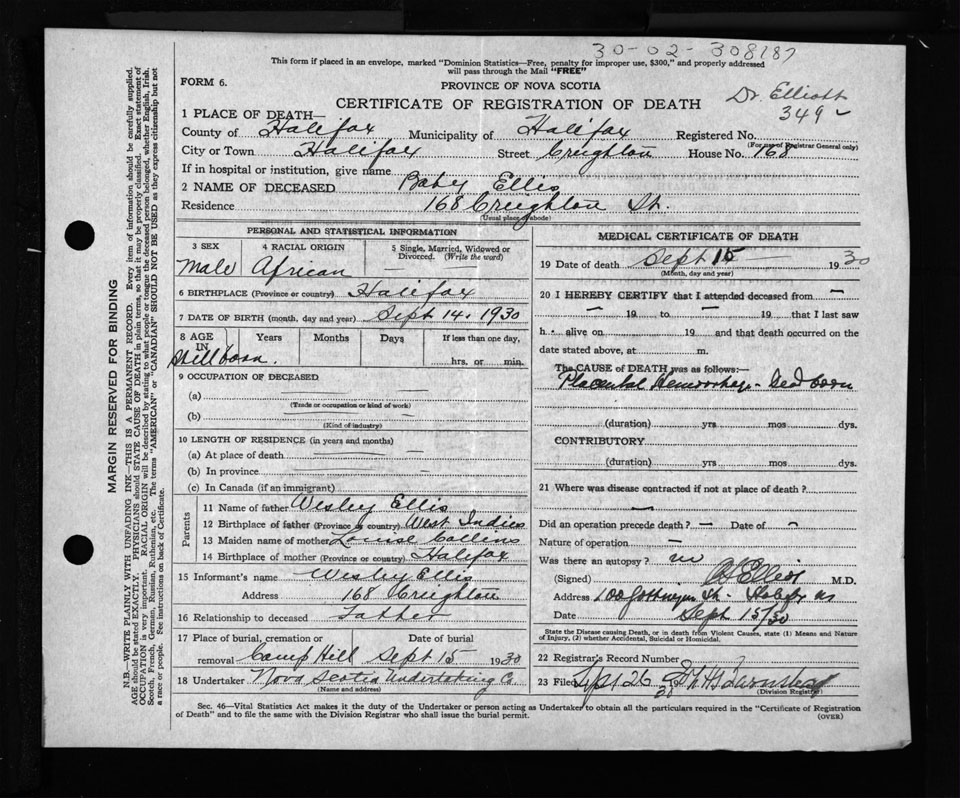 30-02-308187
This form if placed in an envelope, marked "Dominion Statistics—Free, penalty for improper use, $300," and properly addressed
will pass through the Mail "FREE"
FORM 6.
PROVINCE OF NOVA SCOTIA
CERTIFICATE OF REGISTRATION OF DEATH
Dr. Elliott
349
1 PLACE OF DEATH—
County of Halifax Municipality of Halifax Registered No.
(For use of Registrar General only)
City or Town Halifax Street Creighton House No. 168
If in hospital or institution, give name
2 NAME OF DECEASED Baby Ellis
Residence 168 Creighton St.
(Usual place of abode)
PERSONAL AND STATISTICAL INFORMATION
3 SEX 4 RACIAL ORIGIN 5 Single, Married, Widowed or Divorced. (Write the word)
Male African
6 BIRTHPLACE (Province or country) Halifax
7 DATE OF BIRTH (month, day and year) Sept 14. 1930
8 AGE IN Years Months Days If less than one day,
Stillborn. hrs. or min.
9 OCCUPATION OF DECEASED
(a)
(Trade or occupation or kind of work)
(b)
(Kind of industry)
10 LENGTH OF RESIDENCE (in years and months)
(a) At place of death
(b) In province
(c) In Canada (if an immigrant)
Parents
11 Name of father Wesley Ellis
12 Birthplace of father (Province or country) West Indies
13 Maiden name of mother Louise Collins
14 Birthplace of mother (Province or country) Halifax
15 Informant's name Wesley Ellis
Address 168 Creighton
16 Relationship to deceased Father
17 Place of burial, cremation or removal Date of burial
Camp Hill Sept 15 1930
18 Undertaker Nova Scotia Undertaking Co.
(Name and address)
MEDICAL CERTIFICATE OF DEATH
19 Date of death Sept 15 1930
(Month, day and year)
20 I HEREBY CERTIFY that I attended deceased from —
— 19 to — 19 that I last saw
h - alive on 19 and that death occurred on the
date stated above, at m.
The CAUSE OF DEATH was as follows:—
Placental Hemorrhage - Dead born
(duration) yrs mos dys.
CONTRIBUTORY
(duration) yrs mos dys.
21 Where was disease contracted if not at place of death?
Did an operation precede death? — Date of
Nature of operation —
Was there an autopsy? no
(Signed) M.D.
Address 100 Gottingen St. Halifax NS
Date Sept 15/30
State the Disease causing Death, or in death from Violent Causes, state (1) Means and Nature
of Injury, (2) whether Accidental, Suicidal or Homicidal.
22 Registrar's Record Number
23 Filed 26
(Division Registrar)
Sec. 46—Vital Statistics Act makes it the duty of the Undertaker or person acting as Undertaker to obtain all the particulars required in the "Certificate of Registration
of Death" and to file the same with the Division Registrar who shall issue the burial permit.
(OVER)
MARGIN RESERVED FOR BINDING
N.B.—WRITE PLAINLY WITH UNFADING INK—THIS IS A PERMANENT RECORD. Every item of information should be carefully supplied.
AGE should be stated EXACTLY. PHYSICIANS should STATE CAUSE OF DEATH in plain terms, so that it may be properly classified. Exact statement of
OCCUPATION is very important. RACIAL ORIGIN will be described by stating to what people or tongue the deceased person belonged, whether English, Irish,
Scotch, French, German, Russian, Ruthenian, etc. The terms "AMERICAN" or "CANADIAN" SHOULD NOT BE USED as they express citizenship but not
a race or people. See instructions on back of Certificate.